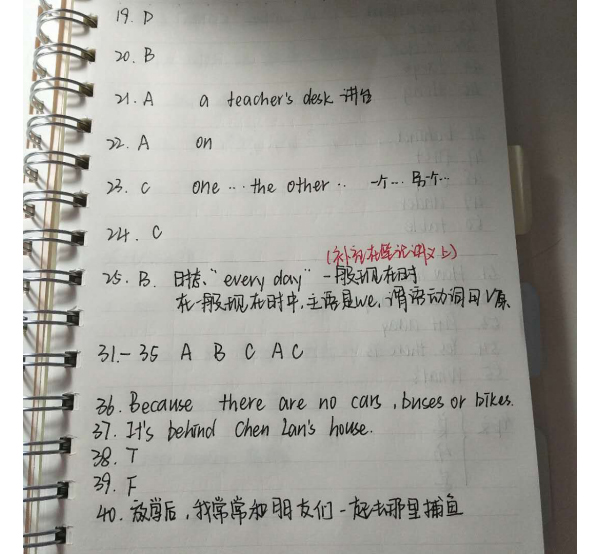 19. D
20. B
21. A a teacher's desk 讲台
22. A on
23. C one … the other … 一个… 另一个…
24. C
(补充在笔记讲义上)
25. B. 时态. "every day" 一般现在时
在一般现在时中, 主语是we, 谓语动词用V原
31.-35 A B C A C
36. Because there are no cars, buses or bikes.
37. It's behind Chen Lan's house.
38. T
39. F
40. 放学后, 我常常和朋友们一起去那里捕鱼